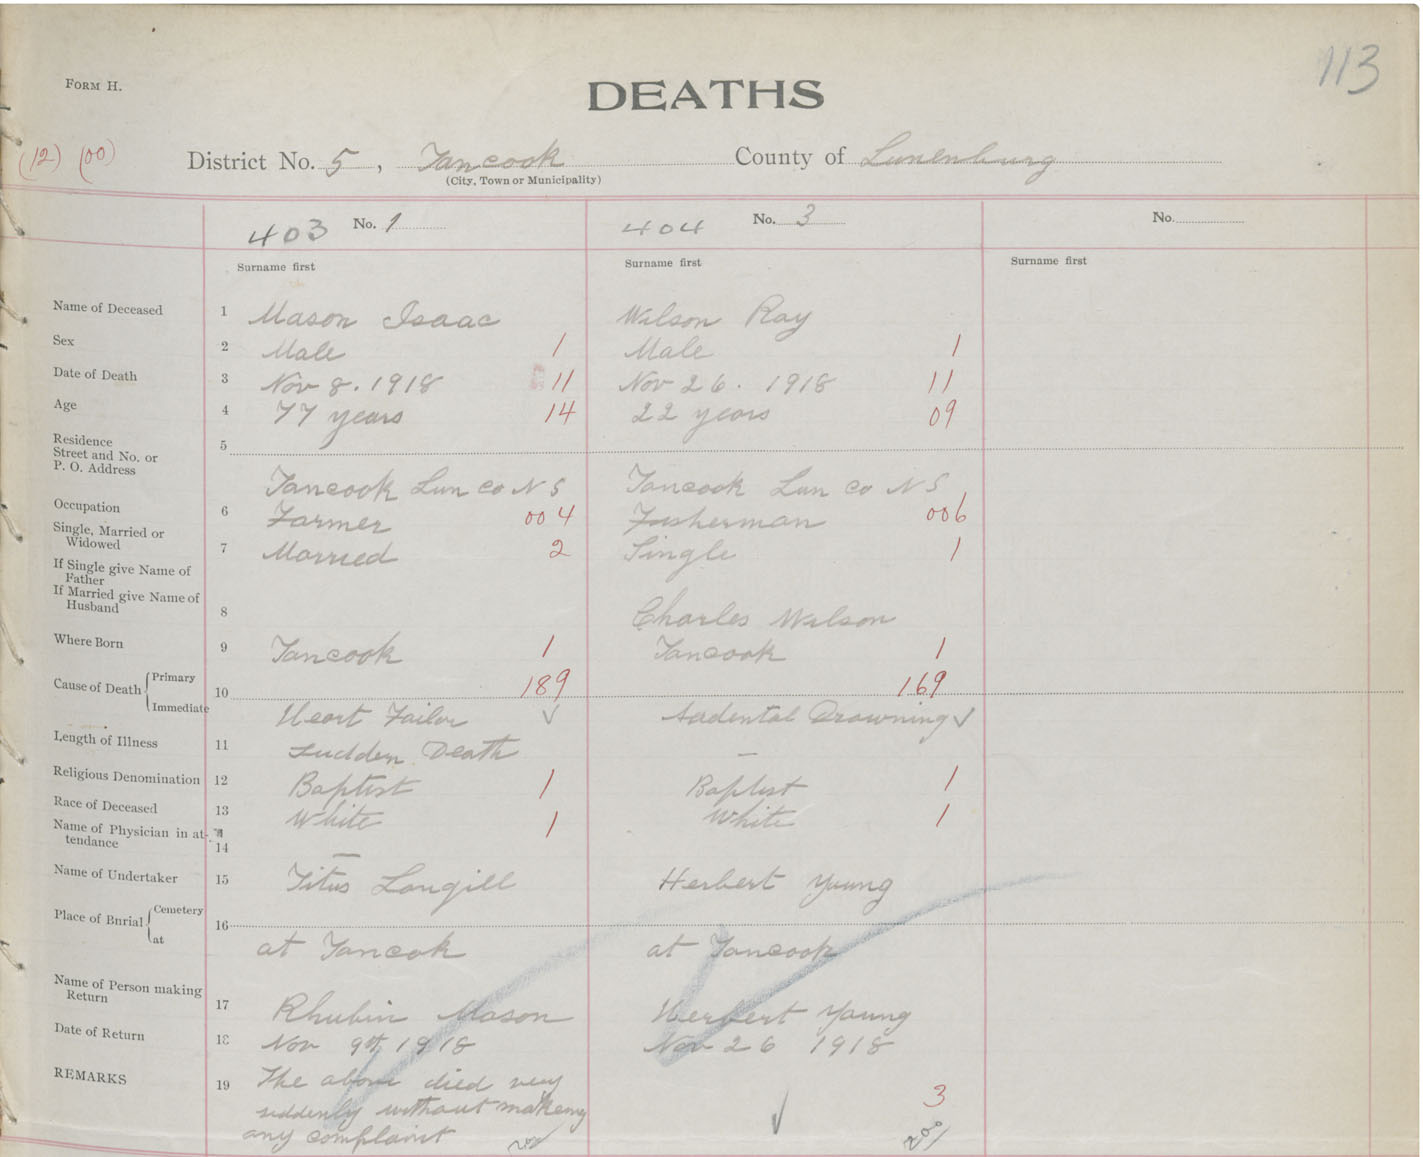 113
FORM H.
DEATHS
(12) (00)
District No. 5, Tancook County of Lunenburg
(City, Town or Municipality)
403 No. 1 404 No. 3 No.
Surname first Surname first Surname first
Name of Deceased 1 Mason Isaac Wilson Ray
Sex 2 Male 1 Male 1
Date of Death 3 Nov 8. 1918 11 Nov 26. 1918 11
Age 4 77 years 14 22 years 09
Residence
Street and No. or
P. O. Address
5 Tancook Lun co N S Tancook Lun co N S
Occupation 6 Farmer 004 Fisherman 006
Single, Married or
Widowed
7 Married 2 Single 1
If Single give Name of
Father
If Married give Name of
Husband
8 Charles Wilson
Where Born 9 Tancook 1 Tancook 1
Cause of Death Primary 189 169
Immediate
10 Heart Failor Acidental Drowning
Length of Illness 11 sudden Death –
Religious Denomination 12 Baptist 1 Baptist 1
Race of Deceased 13 White 1 White 1
Name of Physician in at-
tendance
14 –
Name of Undertaker 15 Titus Langill Herbert Young
Place of Burial Cemetery
at
16 at Tancok at Tancook
Name of Person making
Return
17 Rhubin Mason Herbert Young
Date of Return 18 Nov 9th 1918 Nov 26 1918
REMARKS 19 The above died very
suddenly without makeing
any complaint
3